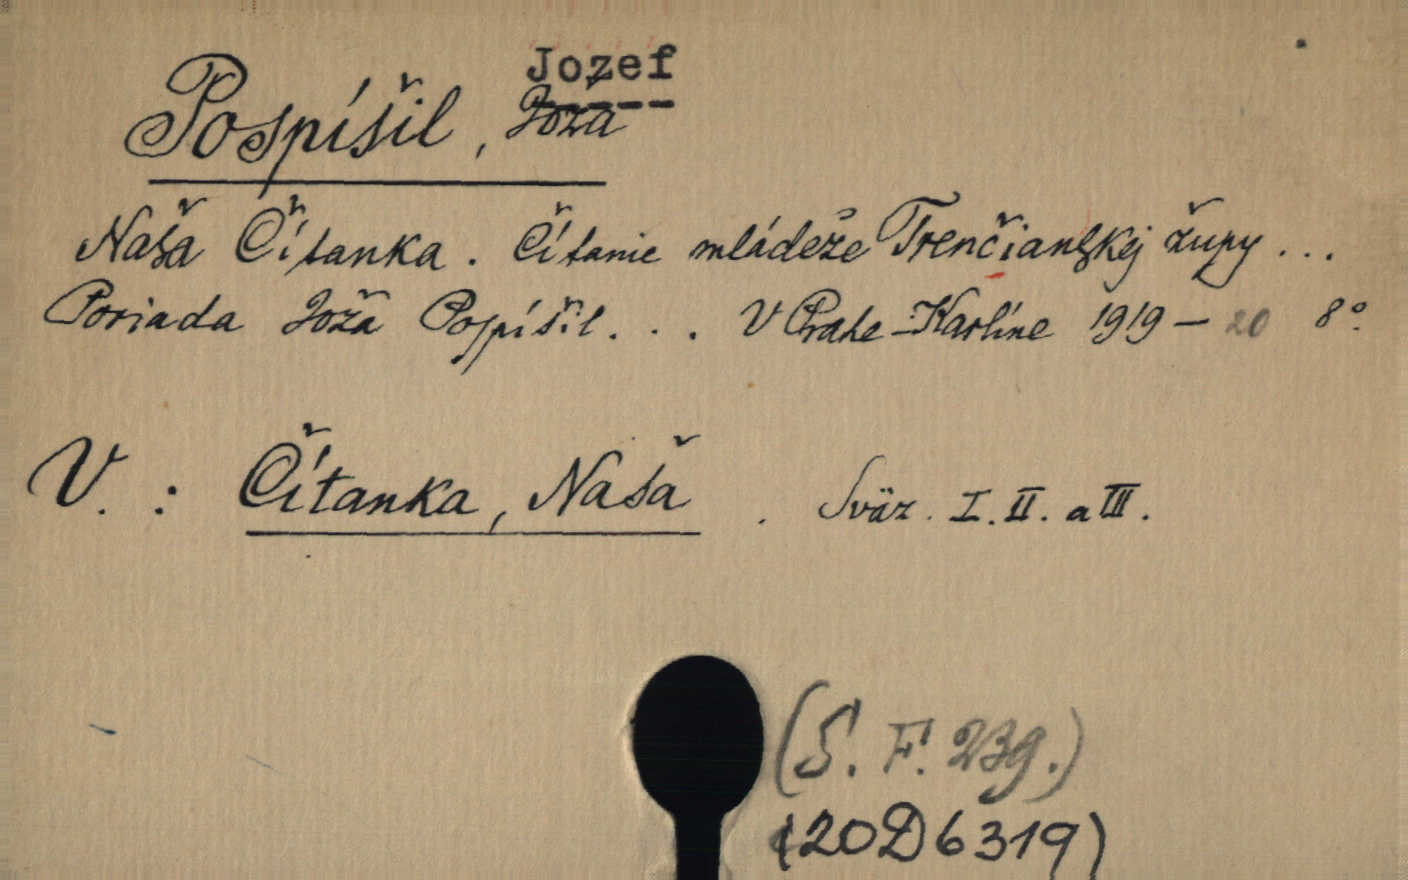 Jozef
Pospíšil, Joža
Naša Čítanka. Čítanie mládeže Trenčianskej župy ...
Poriada Joža Pospíšil. . . V Prahe-Karlíne 1919 – 20 8°.
V. : Čítanka, Naša . Sväz. I. II. a III.
(S. F. 239.)
(20D6319)